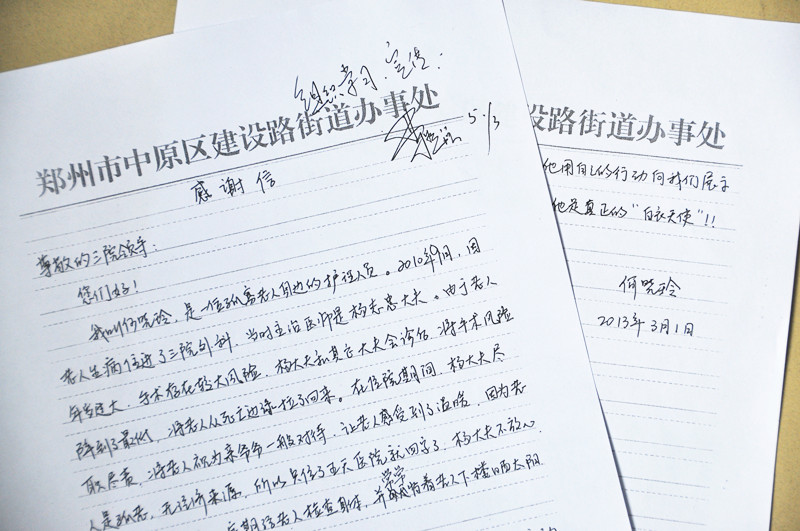 组织学习、宣传:
5.13
郑州市中原区建设路街道办事处
感谢信
尊敬的三院领导:
您们好!
我叫何晓玲,是一位孤寡老人身边的护理人员。2010年9月,因
老人生病住进了三院外科,当时主治医师是杨志高大夫。由于老人
年岁过大,手术存在较大风险,杨大夫和其它大夫会诊后,将手术风险
降到了最低,将老人从死亡边缘拉了回来。在住院期间,杨大夫尽
职尽责,将老人视为亲爷爷一般对待,让老人感受到了温暖,因为老
人是孤老,无经济来源,所以只住了五天医院就回家了,杨大夫不放心
定期给老人检查身体,并常常背着老人下楼晒太阳
设路街道办事处
他用自己的行动向我们展示
他是真正的“白衣天使”!!
何晓玲
2013年3月1日